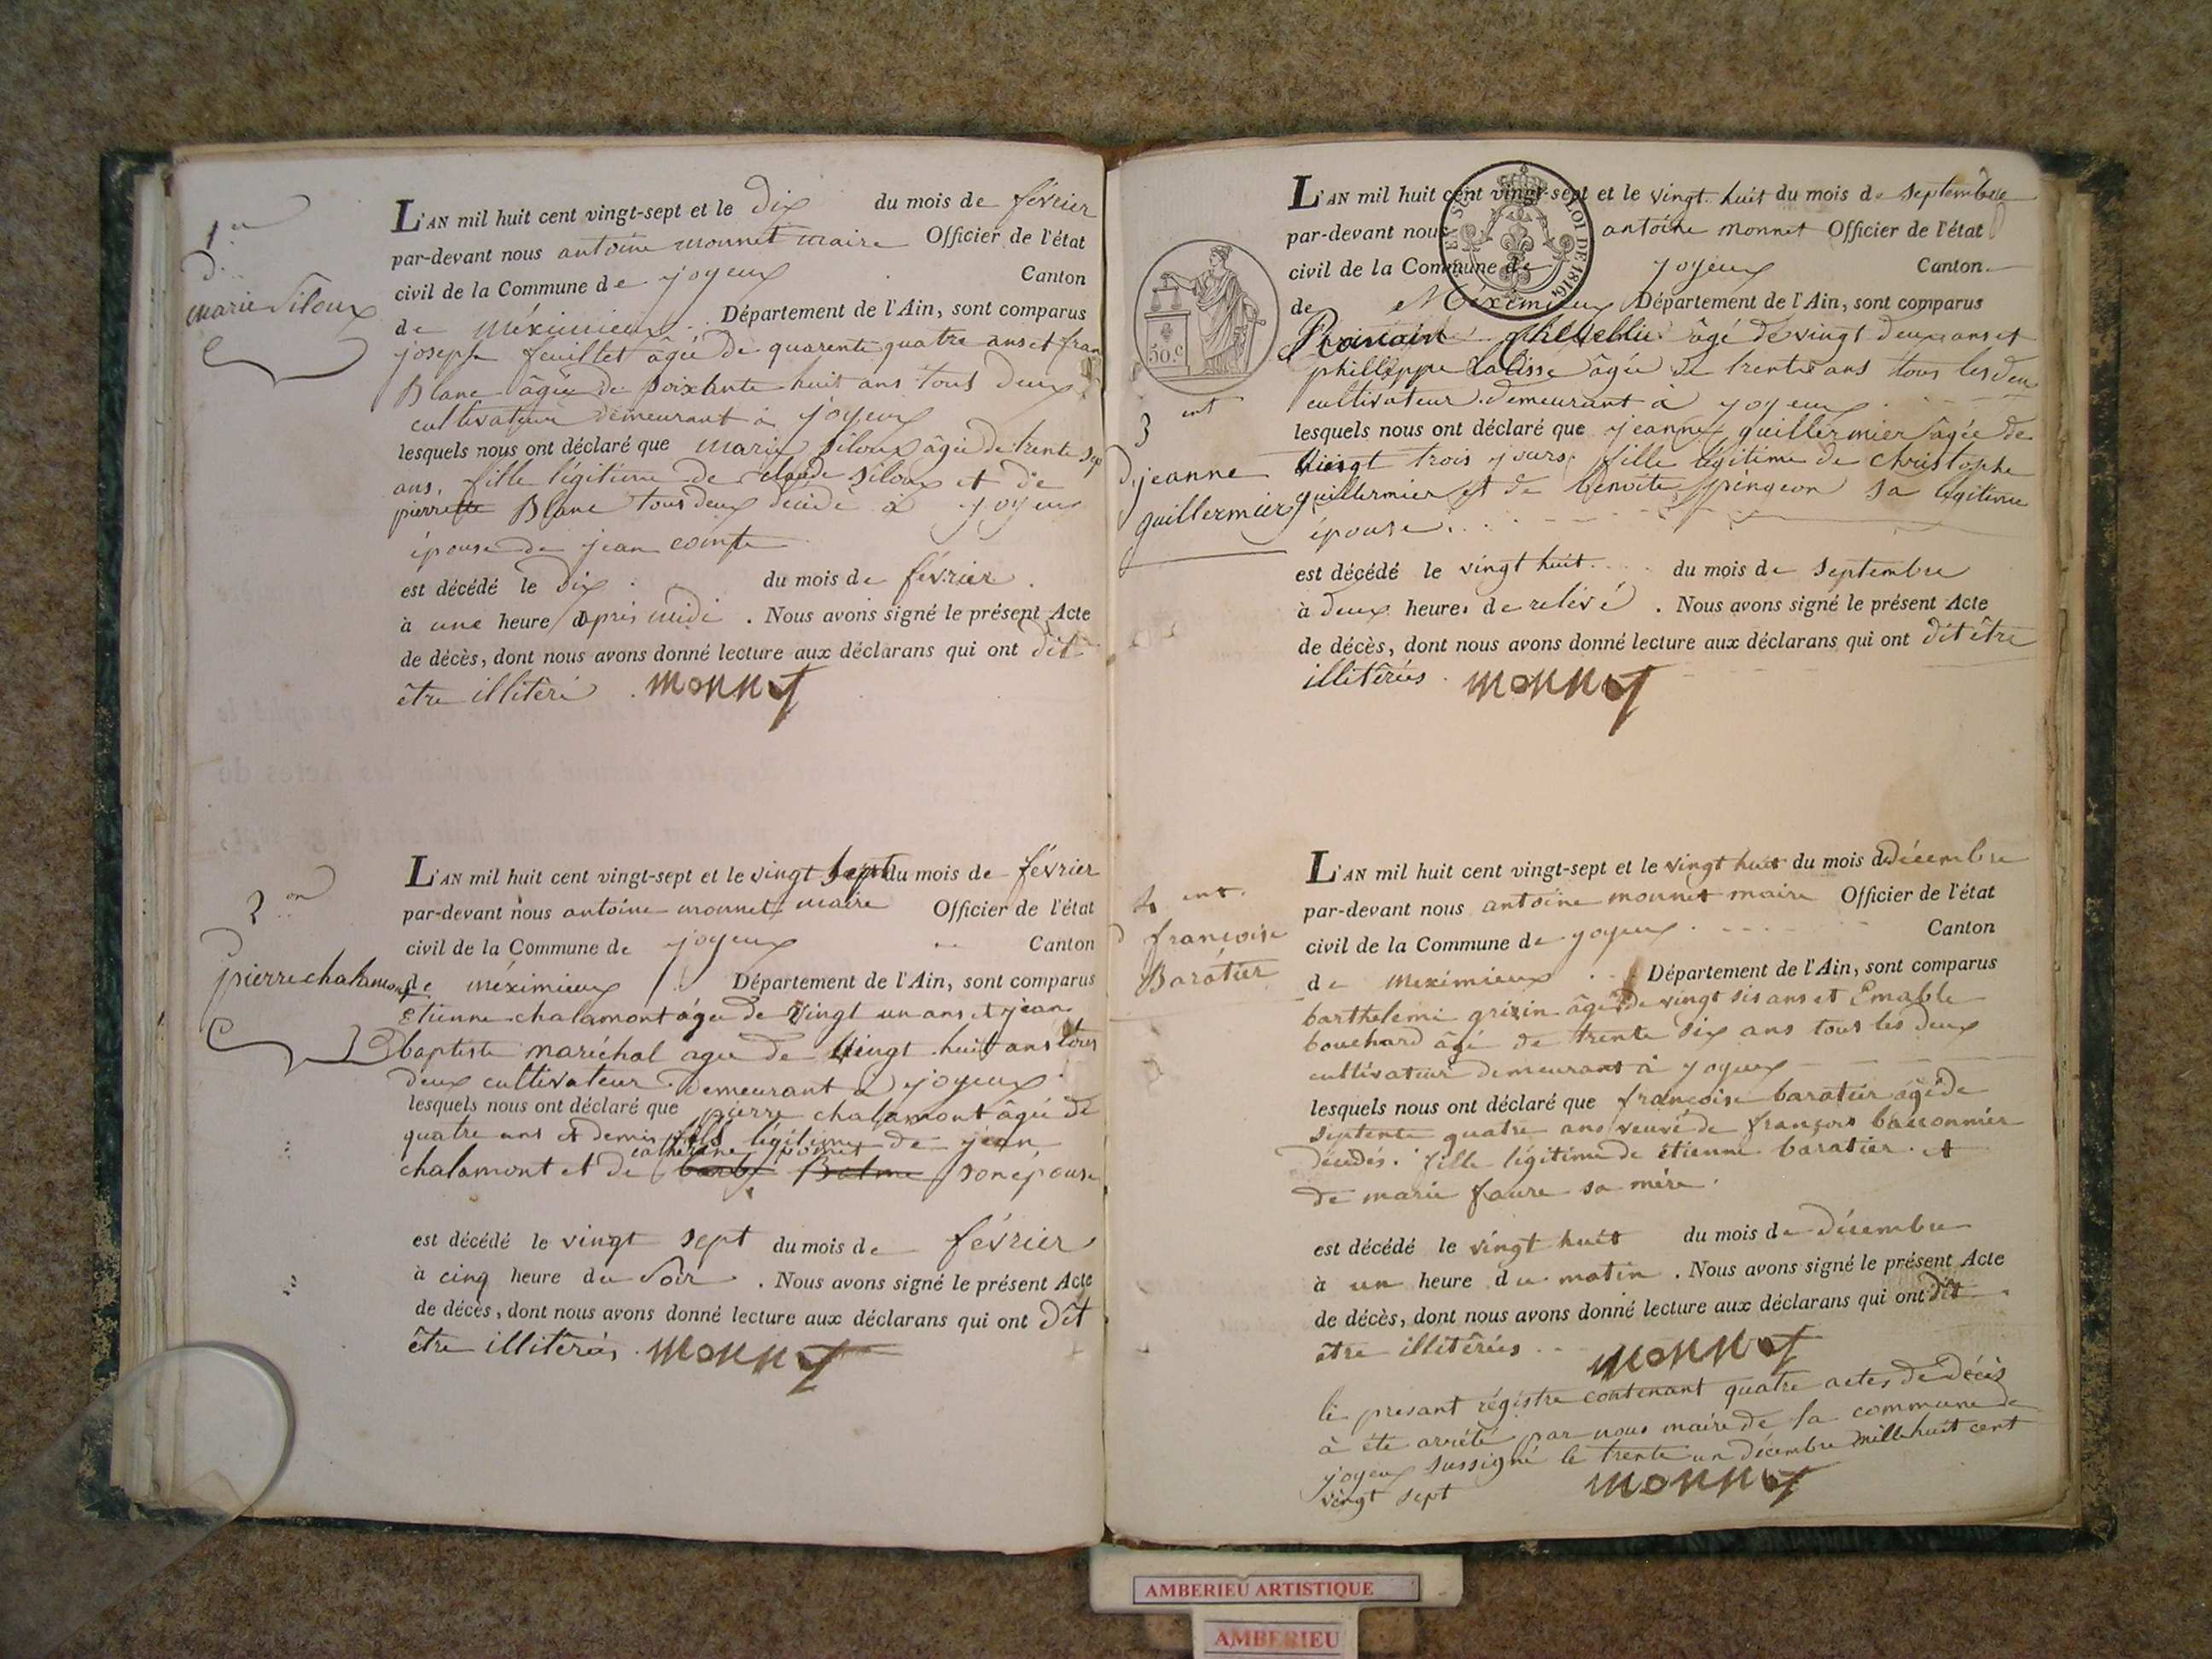 1er
D
marie Siloux
L'AN mil huit cent vingt-sept et le dix du mois de février
par-devant nous antoine monnet maire Officier de l'état
civil de la Commune de joyeux Canton
de méximieux Département de l'Ain, sont comparus
joseph feuillet âgée de quarente quatre ans et fran
Blanc âgée de soixante huit ans tous deux
cultivateur demeurant à joyeux
lesquels nous ont déclaré que marie siloux âgée de trente sep
ans, fille légitime de claude siloux et de
pierrette Blanc tous deux décédé à joyeux
épouse de jean comte
est décédé le dix du mois de février
à une heure après midi . Nous avons signé le présent Acte
de décès, dont nous avons donné lecture aux déclarans qui ont dit
être illitéré . monnet
2
pierre chalamont
L'AN mil huit cent vingt-sept et le vingt sept du mois de février
par-devant nous antoine monnet maire Officier de l'état
civil de la Commune de joyeux Canton
de méximieux Département de l'Ain, sont comparus
Etienne chalamont âgée de vingt un ans et jean
baptiste maréchal agée de vingt huit ans tous
deux cultivateur demeurant à joyeux
lesquels nous ont déclaré que pierre chalamont âgée de
quatre ans et demis fils légitime de jean
catherine pomet
chalamont et de barbe Balme son épouse
est décédé le vingt sept du mois de février
à cinq heure du soir . Nous avons signé le présent Acte
de décès, dont nous avons donné lecture aux déclarans qui ont dit
être illitérés . monnet
LOI DE 1816
50.c
3 ent
D jeanne
guillermier
L'AN mil huit cent vingt-sept et le vingt huit du mois de septembre
par-devant nous antoine monnet Officier de l'état
civil de la Commune de joyeux Canton
de Méximieux Département de l'Ain, sont comparus
âgé de vingt deux ans et
phillippe âgée de trente ans tous les deux
cultivateur demeurant à joyeux
lesquels nous ont déclaré que jeanne guillermier âgée de
vingt trois jours, fille légitime de christophe
guillermier et de benoite pingeon sa légitime
épouse.
est décédé le vingt huit du mois de septembre
à deux heures de relevé . Nous avons signé le présent Acte
de décès, dont nous avons donné lecture aux déclarans qui ont dit être
illitérées . monnet
4 ent.
D françoise
Baratier
L'AN mil huit cent vingt-sept et le vingt huit du mois de décembre
par-devant nous antoine monnet maire Officier de l'état
civil de la Commune de joyeux Canton
de meximieux Département de l'Ain, sont comparus
barthelemi grizin âgé de vingt sis ans et Emable
bouchard âgé de trente six ans tous les deux
cultivateur demeurant à joyeux
lesquels nous ont déclaré que françoise baratier âgé de
septente quatre ans veuve de françois
décédés. fille légitime de étienne baratier et
de marie faure sa mère.
est décédé le vingt huit du mois de décembre
à un heure du matin . Nous avons signé le présent Acte
de décès, dont nous avons donné lecture aux déclarans qui ont dit
être illitérées . monnet
le présant régistre contenant quatre actes de décès
à été arrêté par nous maire de la commune de
joyeux sussigné le trente un décembre mille huit cent
vingt sept monnet
AMBERIEU ARTISTIQUE
AMBERIEU